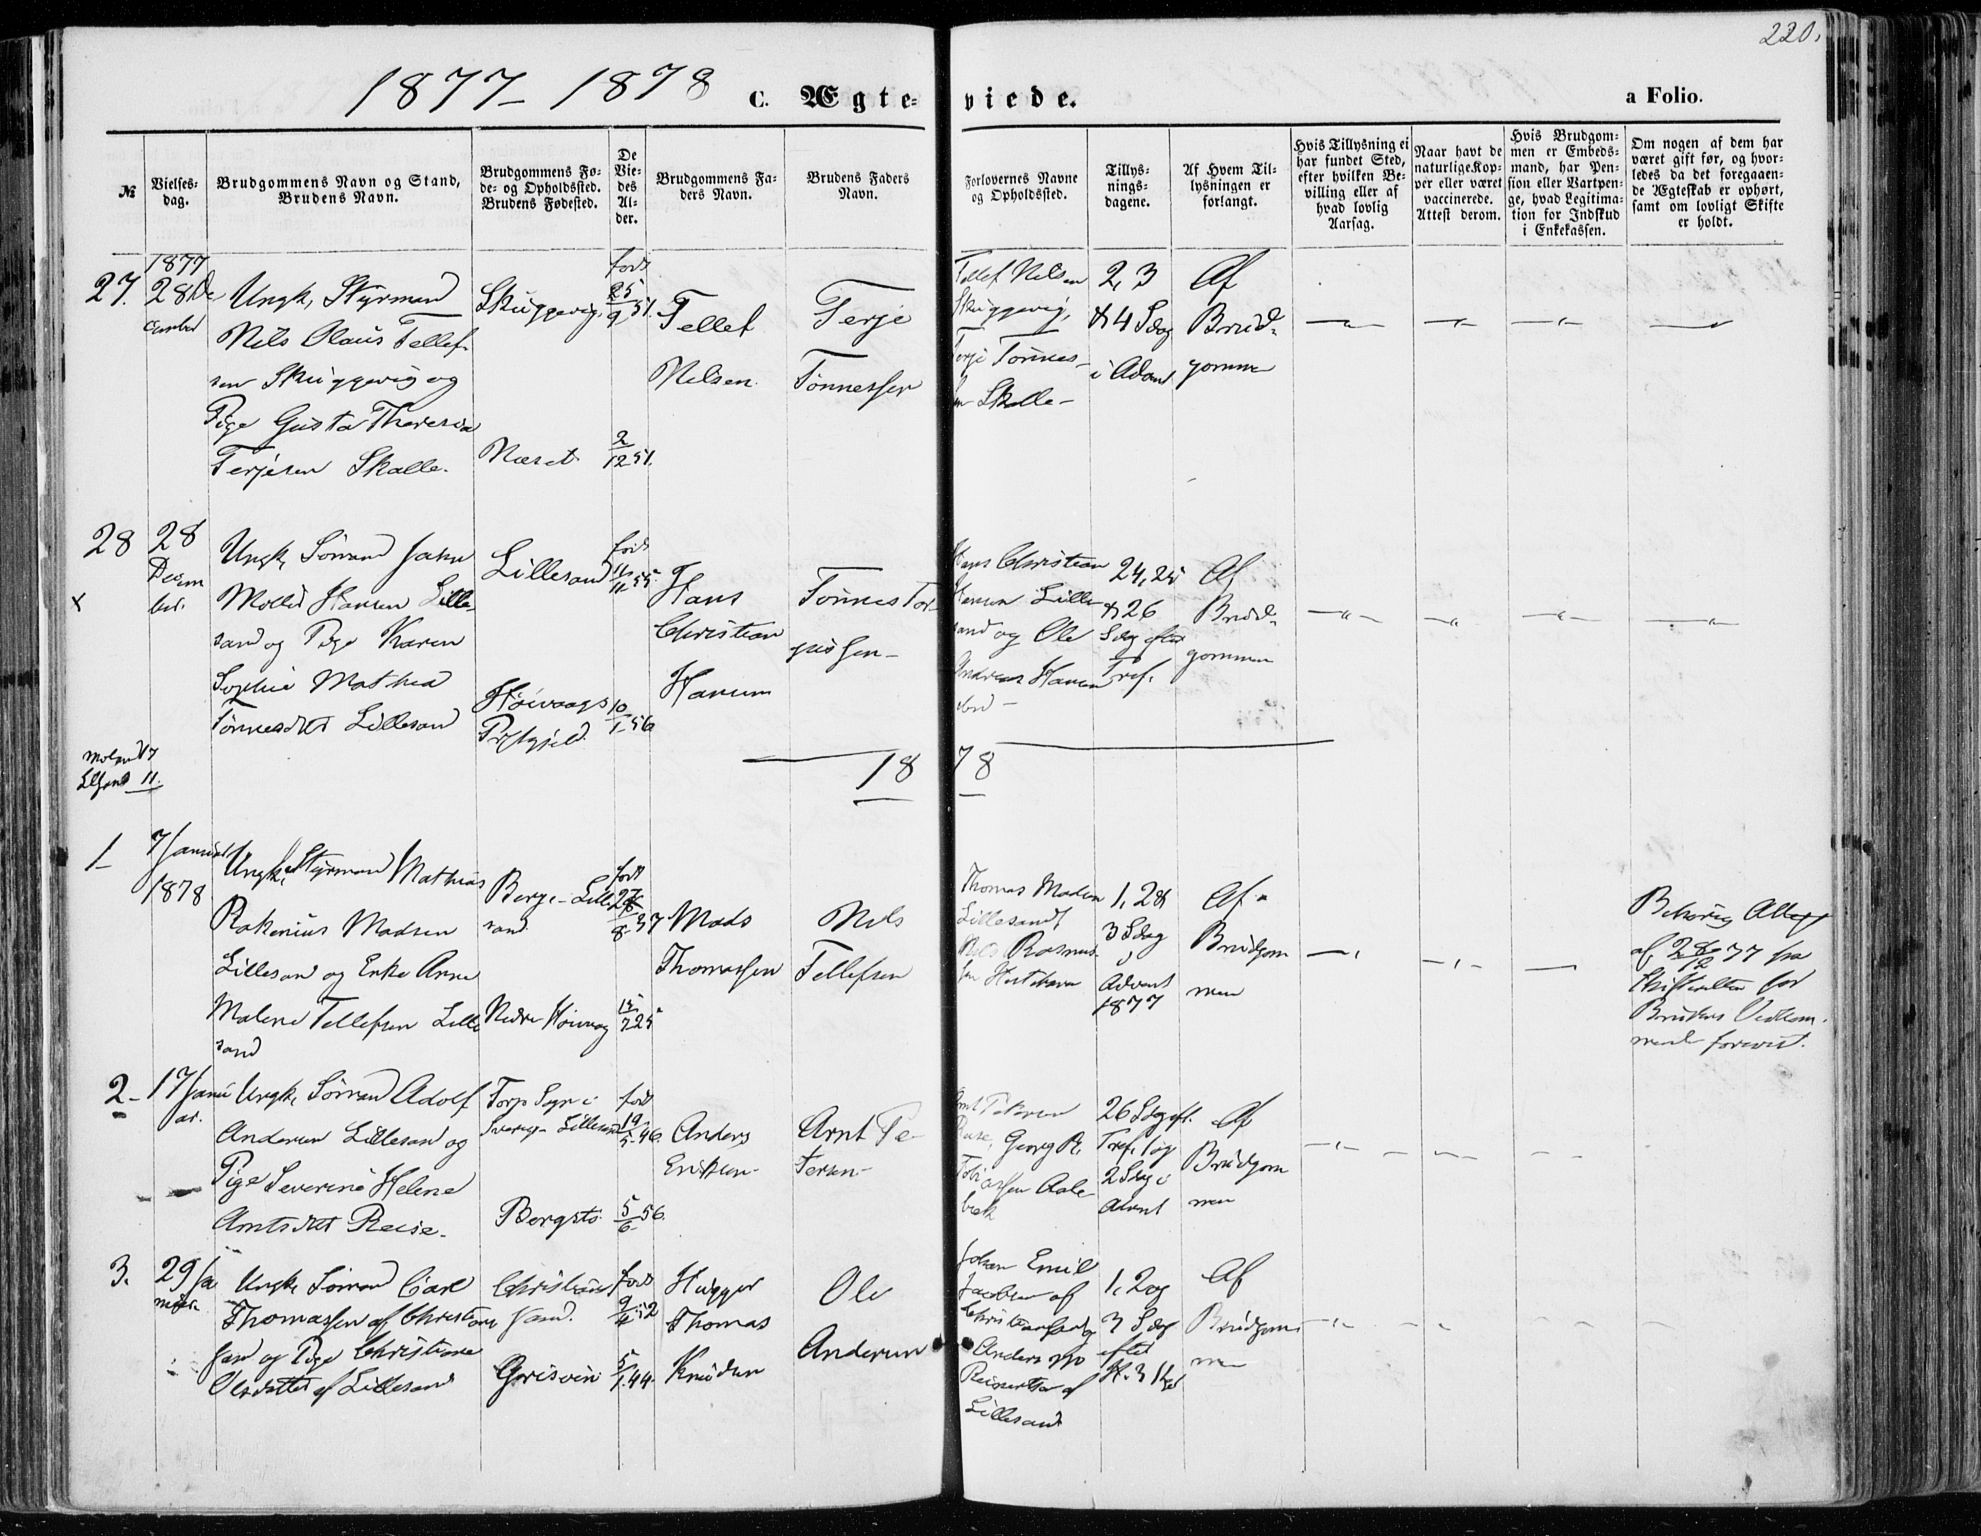 220.
1877 – 1878
C. Ægte-
viede.
a Folio.
№
Vielses-
dag.
Brudgommens Navn og Stand,
Brudens Navn.
Brudgommens Fø-
de- og Opholdssted.
Brudens Fødested.
De
Vie-
des
Al-
der.
Brudgommens Fa-
ders Navn.
Brudens Faders
Navn.
Forlovernes Navne
og Opholdssted.
Tillys-
nings-
dagene.
Af Hvem Til-
lysningen er
forlangt.
Hvis Tillysning ei
har fundet Sted,
efter hvilken Be-
villing eller af
hvad lovlig
Aarsag.
Naar havt de
naturlige Kop-
per eller været
vaccinerede.
Attest derom.
Hvis Brudgom-
men er Embeds-
mand, har Pen-
sion eller Vartpen-
ge, hvad Legitima-
tion for Indskud
i Enkekassen.
Om nogen af dem har
været gift før, og hvor-
ledes da det foregaaen-
de Ægteskab er ophørt,
samt om lovligt Skifte
er holdt.
27.
1877
28 De
cember
Ungk, Styrmand
Nils Olaus Tellef-
sen Skuggevig og
Pige Gusta Theresia
Terjesen Skalle.
Skuggevig.
Næset
født
25/9 51.
2/12 51.
Tellef
Nelsen.
Terje
Tønnessen
Tellef Nelsen
Skuggevig,
Terje Tønnes-
sen Skalle –
2, 3
& 4 Sdag
i Advent
Af
Brud-
gommen
28
x
28
Decem
ber.
Ungk, Sømand Jahn
Hansen Lille-
sand og Pige Karen
Sophie Mathea
Tønnesdtt Lillesand
Lillesand
Høivaags
Prstgjeld.
født
11/11 55.
10/1 56
Hans
Christian
Hansen
Tønnes Tor-
Hans Christian
Hansen Lille-
sand og Ole
Andreas Hansen
24, 25
& 26
Sdag efter
Tref.
Af
Brud-
gommen
Moland 17
Llsand 11.
18 78
1
7 Januar
1878
Ungk, Styrmand Mathias
Madsen
Lillesand og Enke Anne
Malene Tellefsen Lille
sand
Berge – Lille
sand
Nedre Høivaag
født
37
25
Mads
Thomassen
Nils
Tellefsen
Thomas Madsen
Lillesand &
Nils Rasmus-
sen
1, 2 &
3 Sdag
i
Advent
1877
Af
Brudgom
men
Behørig Attest
af 28/12 77 fra
Skifteretten for
Brudens Vedkom-
mende forevist.
2 –
17 Janu
ar.
Ungk, Sømand Adolf
Andersen Lillesand og
Pige Severine Helene
Arntsdtt Reise.
Torp Sogn i
Sverige – Lillesand
Bergstø
født
19/5 46.
5/6 56.
Anders
Eriksen –
Arnt Pe-
tersen –
Arnt Petersen
Reise, Georg R.
Tobiassen Aale-
bæk
26 Sdag eft.
Tref. 1 og
2 Sdag i
Advent
Af
Brudgom
men
3.
29 Ja
nuar
Ungk, Sømand Carl
Thomassen af Christians
sand og Pige Christiane
Olsdatter af Lillesand
Christians
sand.
født
9/4 52
5/1 44.
Thomas
Knudsen
Ole
Andersen
Johan Emil
Jacobsen af
Christianssand og
Anders
af
Lillesand
1, 2 og
3 Sdag
efter
H. 3 Kgr
Af
Brudgom
men